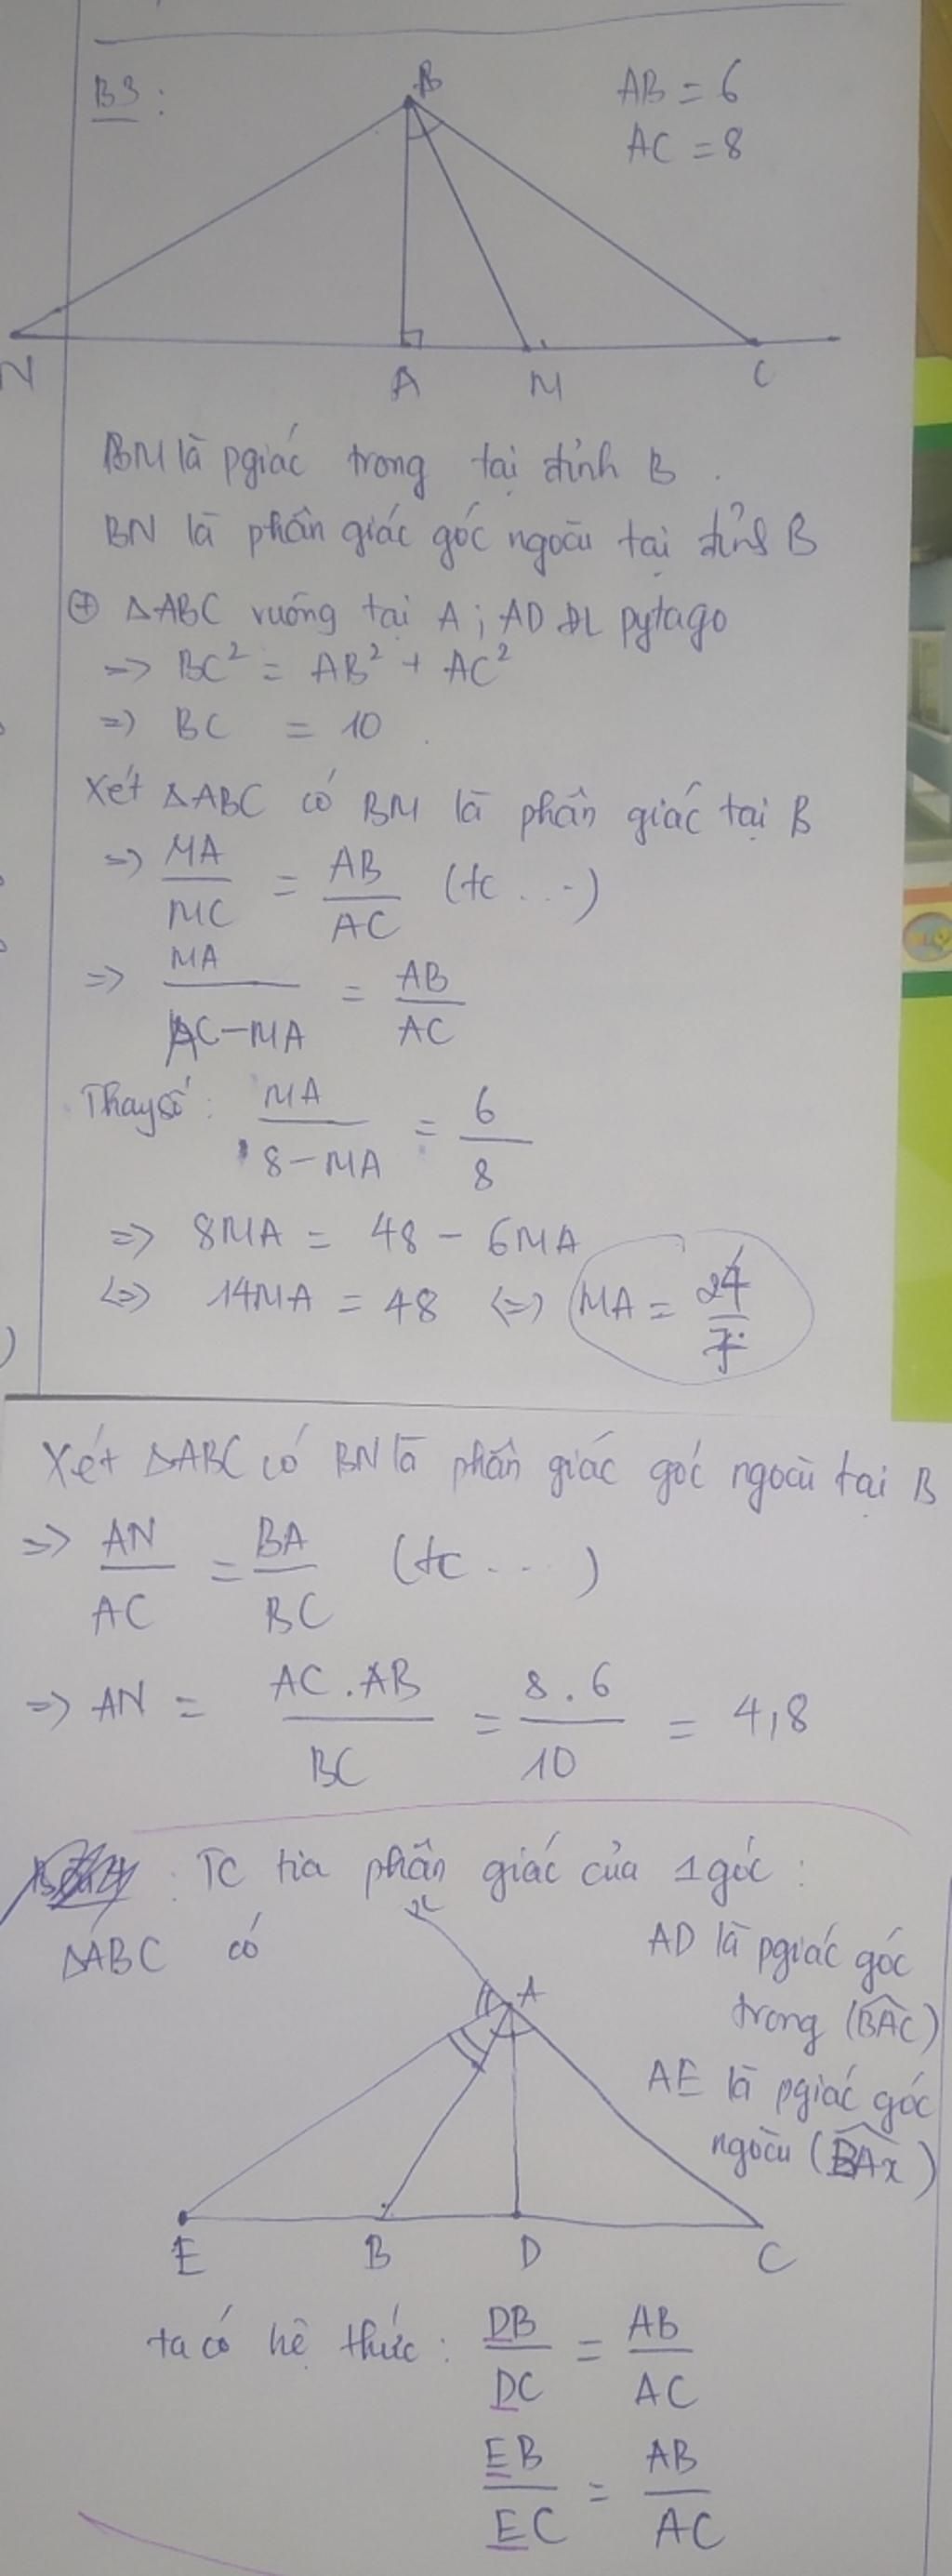 B3:
B
AB = 6
AC = 8
N
A
M
C
BM là pgiác trong tại đỉnh B.
BN là phân giác góc ngoài tại đỉnh B
⊕ ΔABC vuông tại A; AD ĐL pytago
=> BC² = AB² + AC²
=> BC = 10.
Xét ΔABC có BM là phân giác tại B
=> MA/MC = AB/AC (tc ...)
=> MA/AC-MA = AB/AC
Thay số: MA/8-MA = 6/8
=> 8MA = 48 - 6MA
<=> 14MA = 48 <=> MA = 24/7
Xét ΔABC có BN là phân giác góc ngoài tại B
=> AN/AC = BA/BC (tc ...)
=> AN = AC.AB/BC = 8.6/10 = 4,8
: TC tia phân giác của 1 góc:
ΔABC có
x
A
AD là pgiác góc
trong (BAC)
AE là pgiác góc
ngoài (BAx)
E
B
D
C
ta có hệ thức: DB/DC = AB/AC
EB/EC = AB/AC